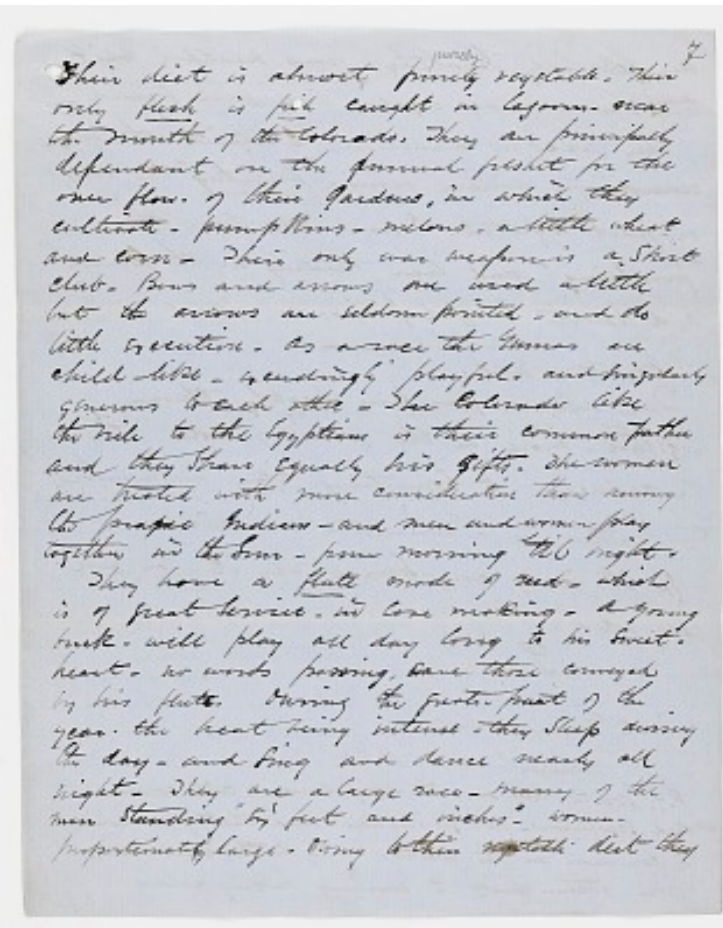 7
purely
Their diet is almost purely vegetable. Their
only flesh is fish caught in lagoons near
the mouth of the Colorado. They are principally
dependant on the annual freshet for the
over flow. of their Gardens, in which they
cultivate - pumpkins - melons, a little wheat
and corn - Their only war weapon is a Short
club. Bows and arrows are used a little
but the arrows are seldom pointed, and do
little execution. As a race the Yumas are
child-like - exceedingly playful. and singularly
generous to each other - The Colorado like
the Nile to the Egyptians is their common father
and they Share Equally his Gifts. The women
are treated with more consideration than among
the prairie Indians - and men and women play
together in the Sun - from morning till night.
They have a flute made of reed - which
is of great Service. in Love making - A young
buck - will play all day long to his Sweet.
heart - no words passing, save those conveyed
by his flute. During the greater part of the
year. the heat being intense - they Sleep during
the day - and Sing and dance nearly all
night. They are a large race - many of the
men Standing "six feet and inches". women -
proportionately large. Owing to their vegetable diet they